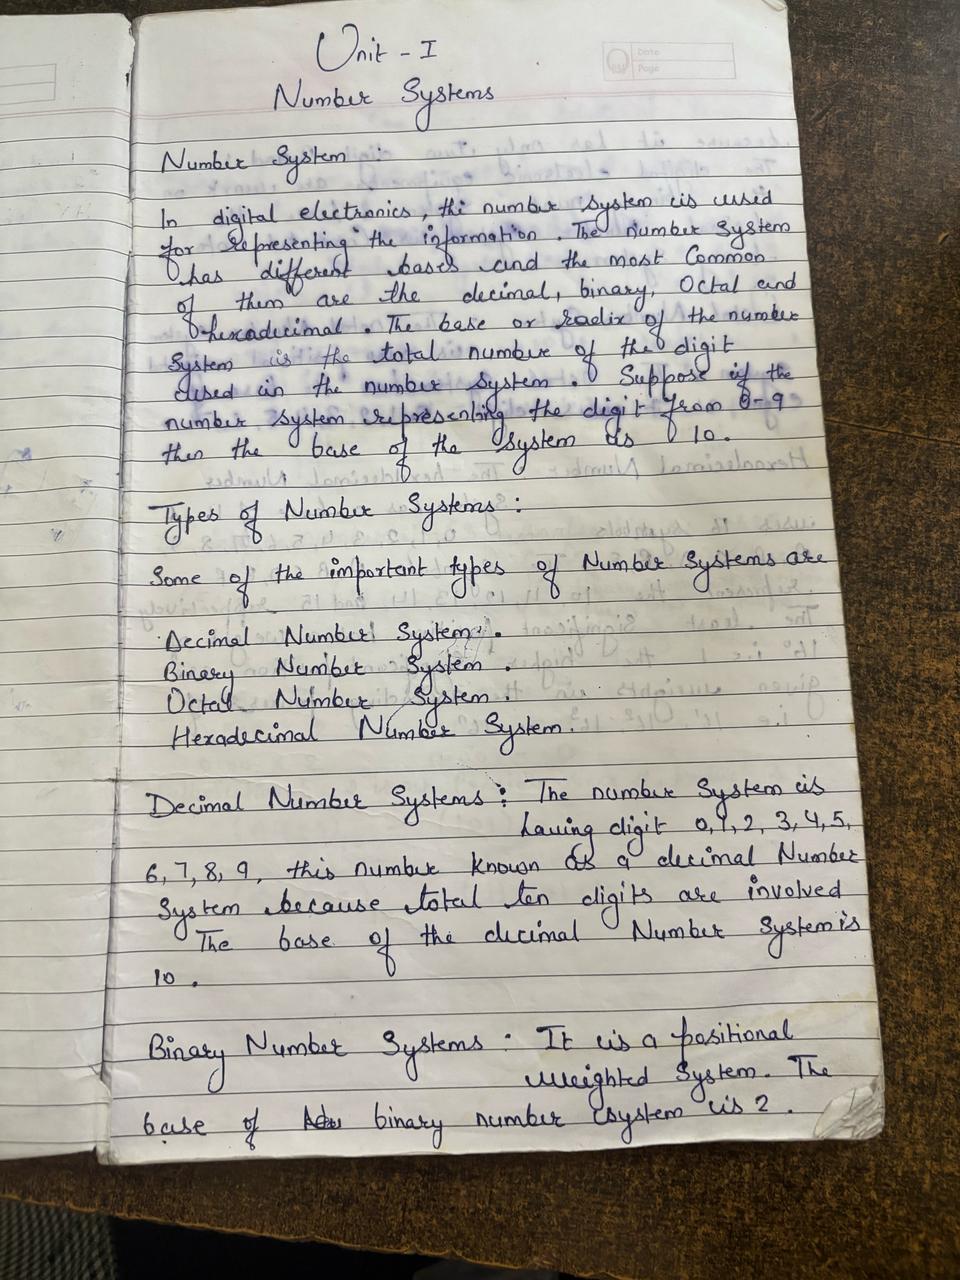 Unit - I
Date
Page
Number Systems
Number System :
In digital electronics, the number system is used
for representing the information. The number system
has different bases and the most Common
of them are the decimal, binary, Octal and
hexadecimal. The base or radix of the number
System is the total number of the digit
used in the number system. Suppose if the
number system representing the digit from 0-9
then the base of the system is 10.
Types of Number Systems :
Some of the important types of Number Systems are
Decimal Number System.
Binary Number System.
Octal Number System.
Hexadecimal Number System.
Decimal Number Systems : The number System is
having digit 0, 1, 2, 3, 4, 5,
6, 7, 8, 9, this number known as a decimal Number
System because total ten digits are involved
The base of the decimal Number System is
10.
Binary Number Systems : It is a positional
weighted System. The
base of binary number system is 2.